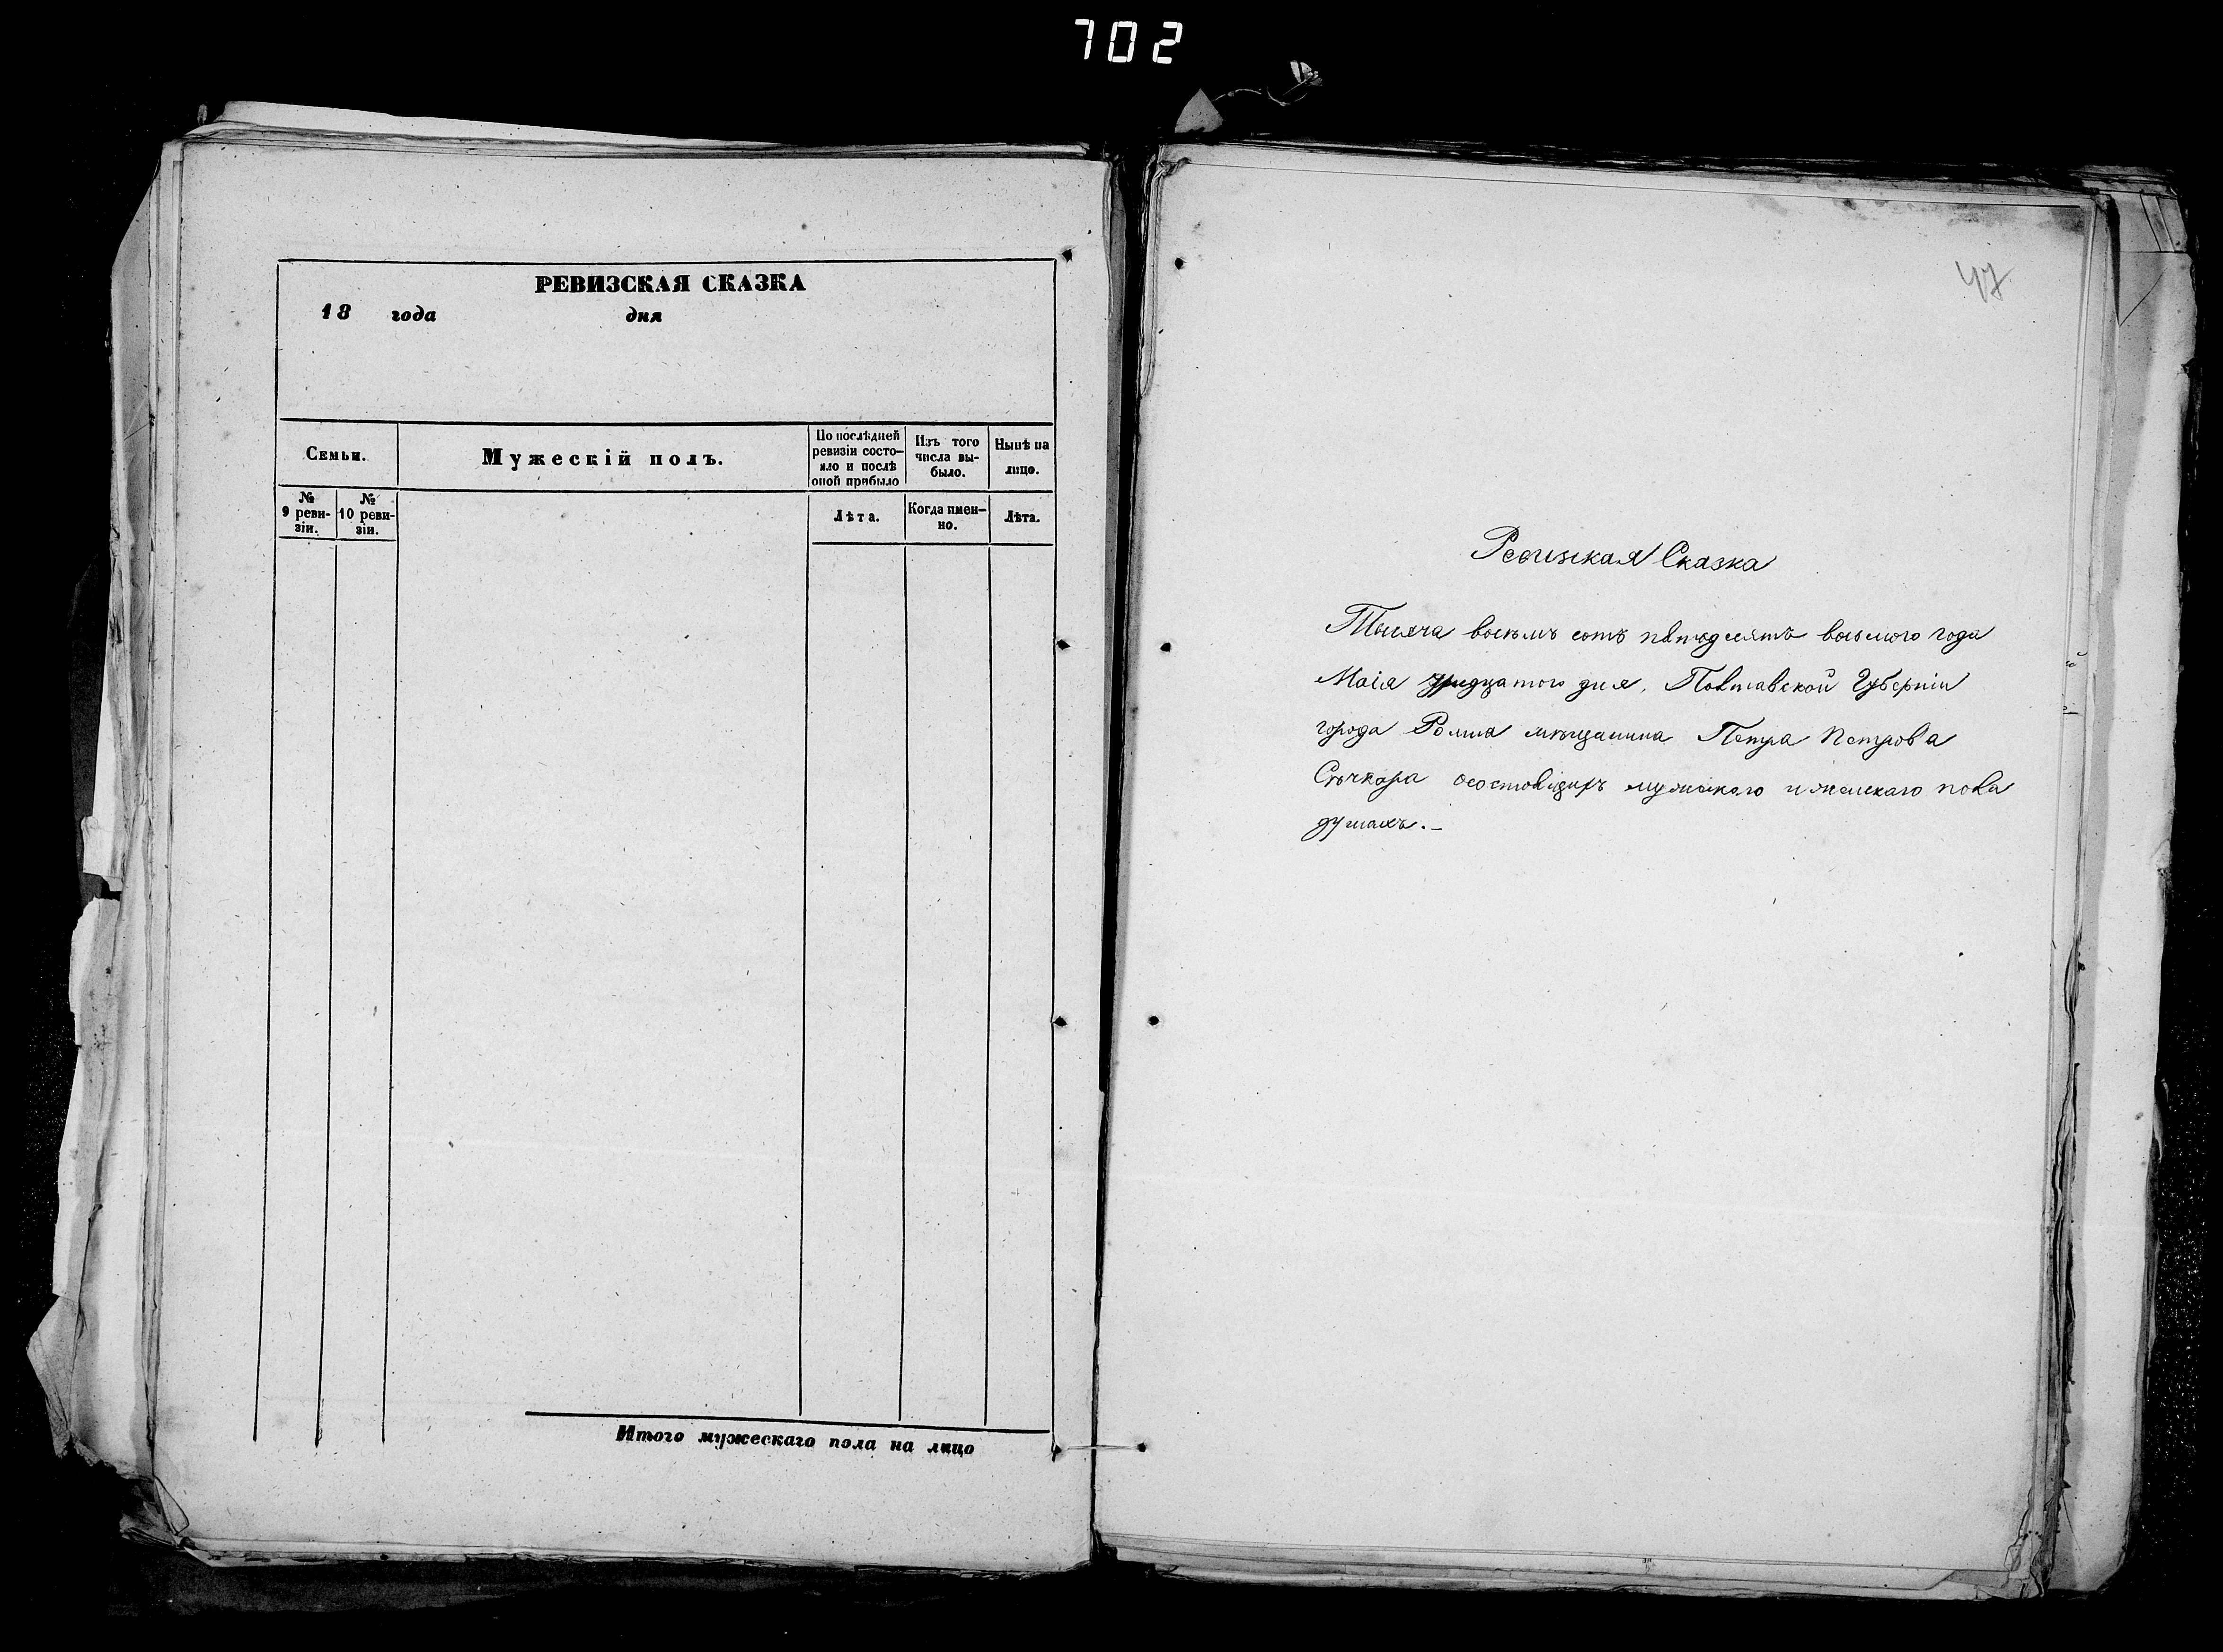 702
РЕВИЗСКАЯ СКАЗКА
18 года дня
Семьи.
Мужескій полъ.
По послѣдней ревизіи состо-
яло и послѣ оной прибыло
Изъ того числа вы-
было.
Нынѣ на лицо.
№ 9 реви-
зіи.
№ 10 реви-
зіи.
Лѣта.
Когда имен-
но.
Лѣта.
Итого мужескаго пола на лицо
47
Ревизская Сказка
Тысяча восемь сотъ пятдесятъ восьмого года
Маія тридцатого дня, Полтавской Губерніи
города Ромна мѣщанина Петра Петрова
Сѣчкаря мужскаго и женскаго пола
душахъ.–